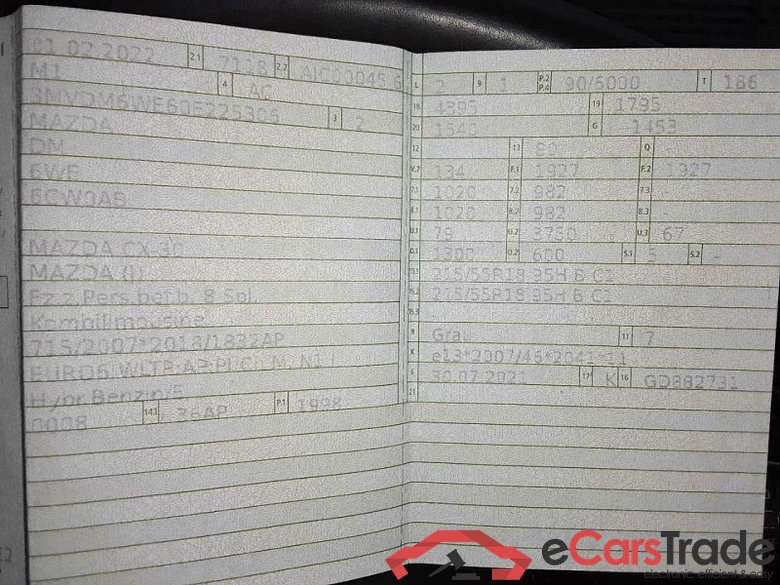 01.02.2022 2.1 7118 2.2 AIC00045 6
M1 4 AC
3MVDM6WE60E225305 3 2
MAZDA
DM
6WE
6CW0AB
MAZDA CX-30
MAZDA (J)
Fz.z.Pers.bef.b. 8 Spl.
Kombilimousine
715/2007*2018/1832AP
EURO6 WLTP AP PI CI M, N1 I
Hybr.Benzin/E
0008 14.1 36AP P.1 1998
L 2 9 1 P.2 P.4 90/6000 T 186
18 4395 19 1795
20 1540 G 1453
12 - 13 80 Q -
V.7 134 F.1 1927 F.2 1927
7.1 1020 7.2 982 7.3 -
8.1 1020 8.2 982 8.3 -
U.1 79 U.2 3750 U.3 67
O.1 1300 O.2 600 S.1 5 S.2 -
15.1 215/55R18 95H B C1
15.2 215/55R18 95H B C1
15.3 -
R Grau 11 7
K e13*2007/46*2041*11
6 30.07.2021 17 K 16 GD882731
21
eCarsTrade
electronic, efficient & easy